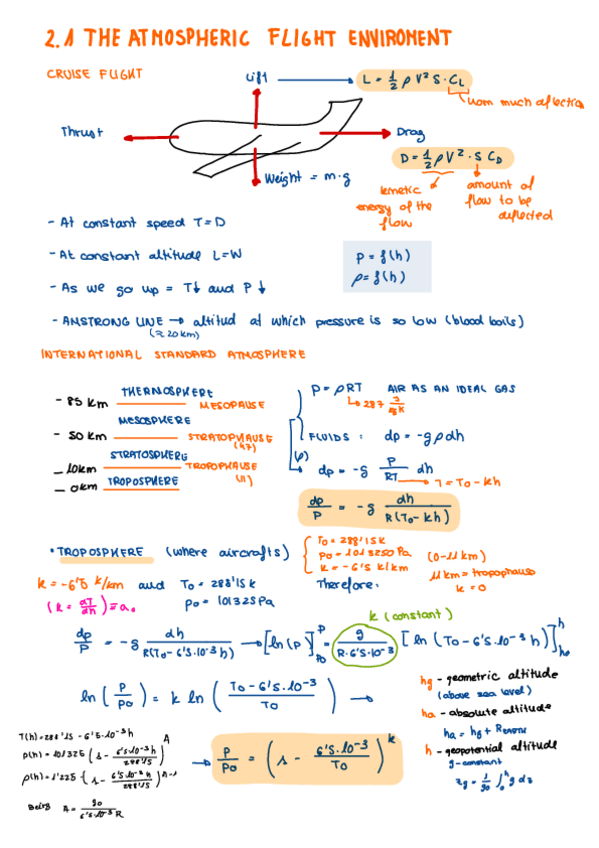 2.1 THE ATMOSPHERIC FLIGHT ENVIROMENT
CRUISE FLIGHT
Lift
L = 1/2 ρ V² S · CL
how much deflection
Thrust
Drag
D = 1/2 ρ V² · S CD
Weight = m·g
kinetic energy of the flow
amount of flow to be deflected
- At constant speed T = D
- At constant altitude L = W
P = f(h)
ρ = f(h)
- As we go up = T↓ and P↓
- AMSTRONG LINE → altitud at which pressure is so low (blood boils)
(≈ 20 km)
INTERNATIONAL STANDARD ATMOSPHERE
THERMOSPHERE
- 85 km MESOPAUSE
MESOSPHERE
- 50 km STRATOPHAUSE (47)
STRATOSPHERE
- 10km TROPOPHAUSE (11)
- 0km TROPOSPHERE
P = ρRT AIR AS AN IDEAL GAS
287 J/kgK
FLUIDS: dp = -gρdh
(ρ)
dp = -g P/RT dh
T = To - kh
dp/P = -g dh/R(To - kh)
• TROPOSPHERE (where aircrafts)
To = 288'15 K
Po = 1013250 Pa
k = -6'5 k/km
(0-11 km)
11 km = tropophause
k = 0
k = -6'5 k/km and To = 288'15 k
Po = 101325 Pa
Therefore:
(k = dT/dh) = a.
k (constant)
dp/P = -g dh/R(To - 6'5·10⁻³ h) → [ln(P)] P Po = g/R·6'5·10⁻³ [ln(To - 6'5·10⁻³ h)] h ho
ln(P/Po) = k ln(To - 6'5·10⁻³/To) →
hg - geometric altitude
(above sea level)
ha - absolute altitude
ha = hg + REARTH
h - geopotential altitude
g - constant
zg = 1/go ∫₀ʰ g dz
→ P/Po = (1 - 6'5·10⁻³/To)ᵏ
T(h) = 288'15 - 6'5·10⁻³h
P(h) = 101325 (1 - 6'5·10⁻³h/288'15)^A
ρ(h) = 1'225 (1 - 6'5·10⁻³h/288'15)^A-1
Being A = go/6'5·10⁻³ R